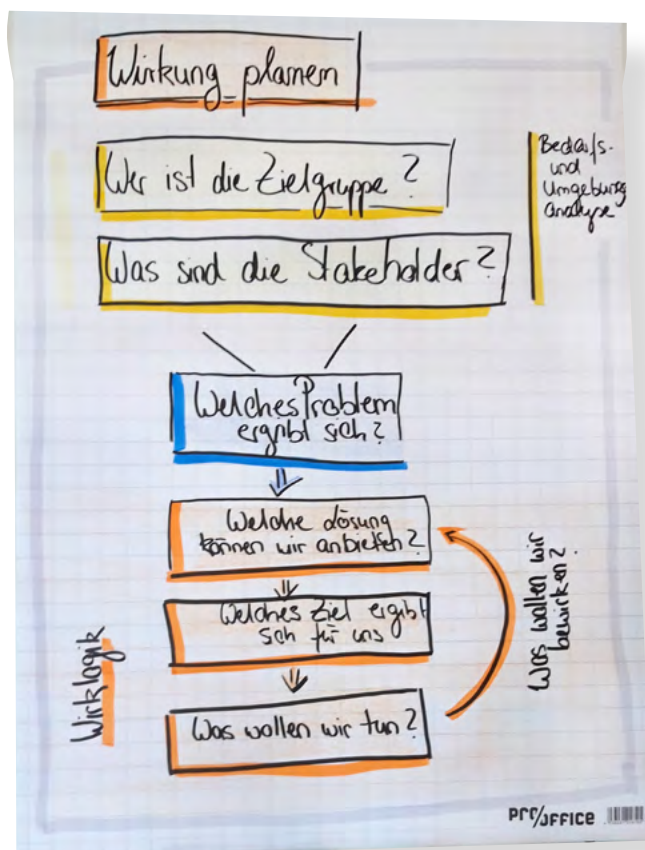 Wirkung planen
Wer ist die Zielgruppe?
Bedarfs-
und
Umgebung
analyse
Was sind die Stakeholder?
Welches Problem
ergibt sich?
Welche Lösung
können wir anbieten?
Welches Ziel ergibt
sich für uns
Was wollen wir tun?
Was wollen wir
bewirken?
Wirklogik
PRO/OFFICE